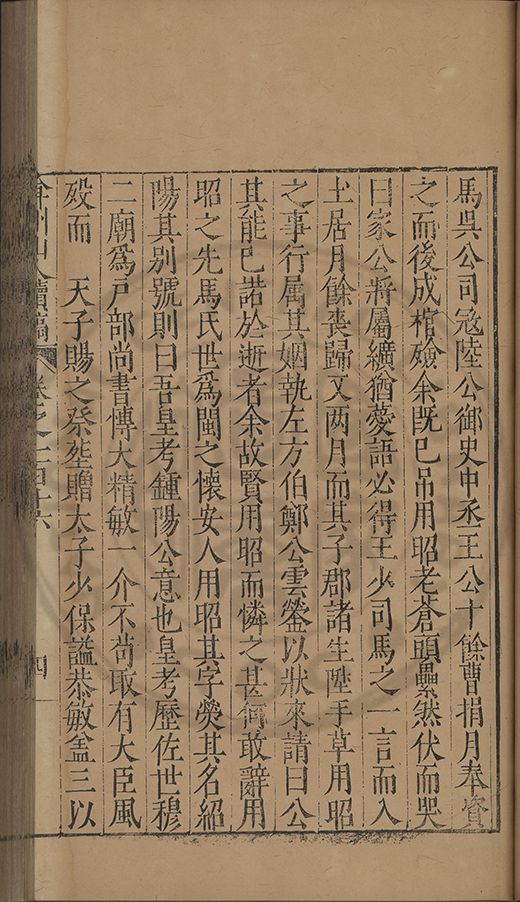 馬吳公司寇陸公御史中丞王公十餘曹捐月奉資
之而後成棺殮余既已吊用昭老蒼頭纍然伏而哭
曰家公將屬纊猶薆語必得王少司馬之一言而入
土居月餘喪歸又两月而其子郡諸生陞手草用昭
之事行属其姻執左方伯鄭公雲鎣以狀來請曰公
其能已諾於逝者余故賢用昭而憐之甚何敢辭用
昭之先馬氏世爲閩之懷安人用昭其字熒其名紹
陽其别號則曰吾皇考鍾陽公意也皇考歷佐世穆
二廟爲戸部尚書愽大精敏一介不苟取有大臣風
殁而　天子賜之祭塟贈太子少保謚恭敏盒三以
弇州山人續稿　卷之一百十六　四